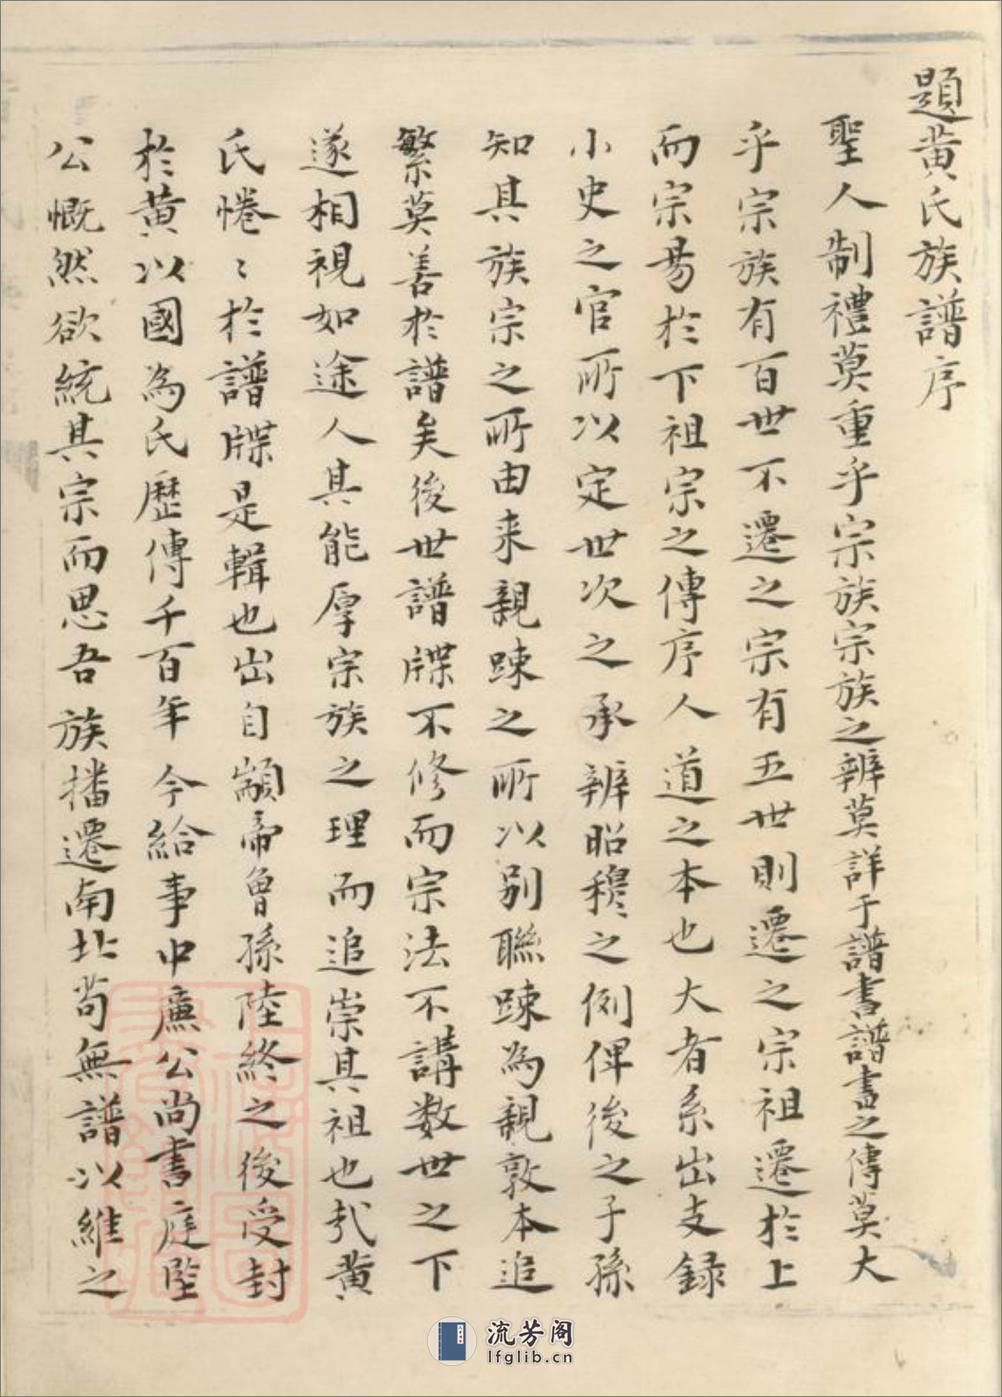 題黄氏族譜序
聖人制禮莫重乎宗族宗族之辨莫詳于譜書譜書之傳莫大
乎宗族有百世不遷之宗有五世則遷之宗祖遷於上
而宗昜於下祖宗之傳序人道之本也大者系出支録
小史之官所以定世次之承辨昭穆之例俾後之子孫
知其族宗之所由来親踈之所以别聯踈為親敦本追
繁莫善於譜矣後世譜牒不修而宗法不講数世之下
遂相視如途人其能厚宗族之理而追崇其祖也㢤黄
氏惓〻於譜牒是輯也出自顓帝曾孫陸終之後受封
於黄以國為氏歷傳千百年今給事中廉公尚書庭堅
公慨然欲統其宗而思吾族播遷南北苟無譜以維之
流芳阁
lfglib.cn